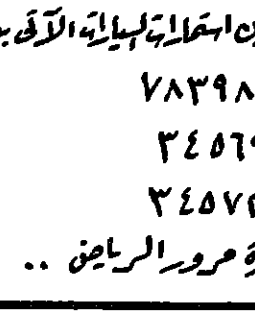 استمارات السيارات الآتي
٧٨٣٩٨
٣٤٥٦٩
٣٤٥٧٢
مرور الرياض ..